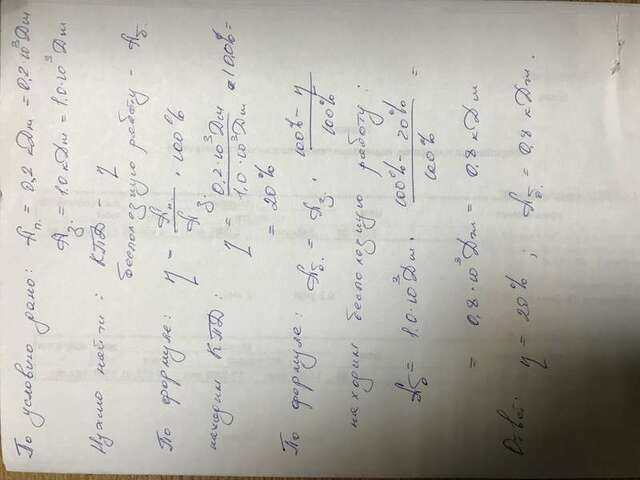 По условию дано: Aп. = 0,2 кДж = 0,2·10³Дж
Aз. = 1.0 кДж = 1.0·10³Дж
Нужно найти: КПД - η
бесполезную работу - Aб.
По формуле: η = Aп./Aз. · 100%
находим КПД: η = 0,2·10³Дж/1,0·10³Дж · 100% =
= 20%
По формуле: Aб. = Aз. · 100% - η/100%
находим бесполезную работу:
Aб = 1.0·10³Дж · 100% - 20%/100% =
= 0,8·10³Дж = 0,8 кДж
Ответ: η = 20% ; Aб. = 0,8 кДж.